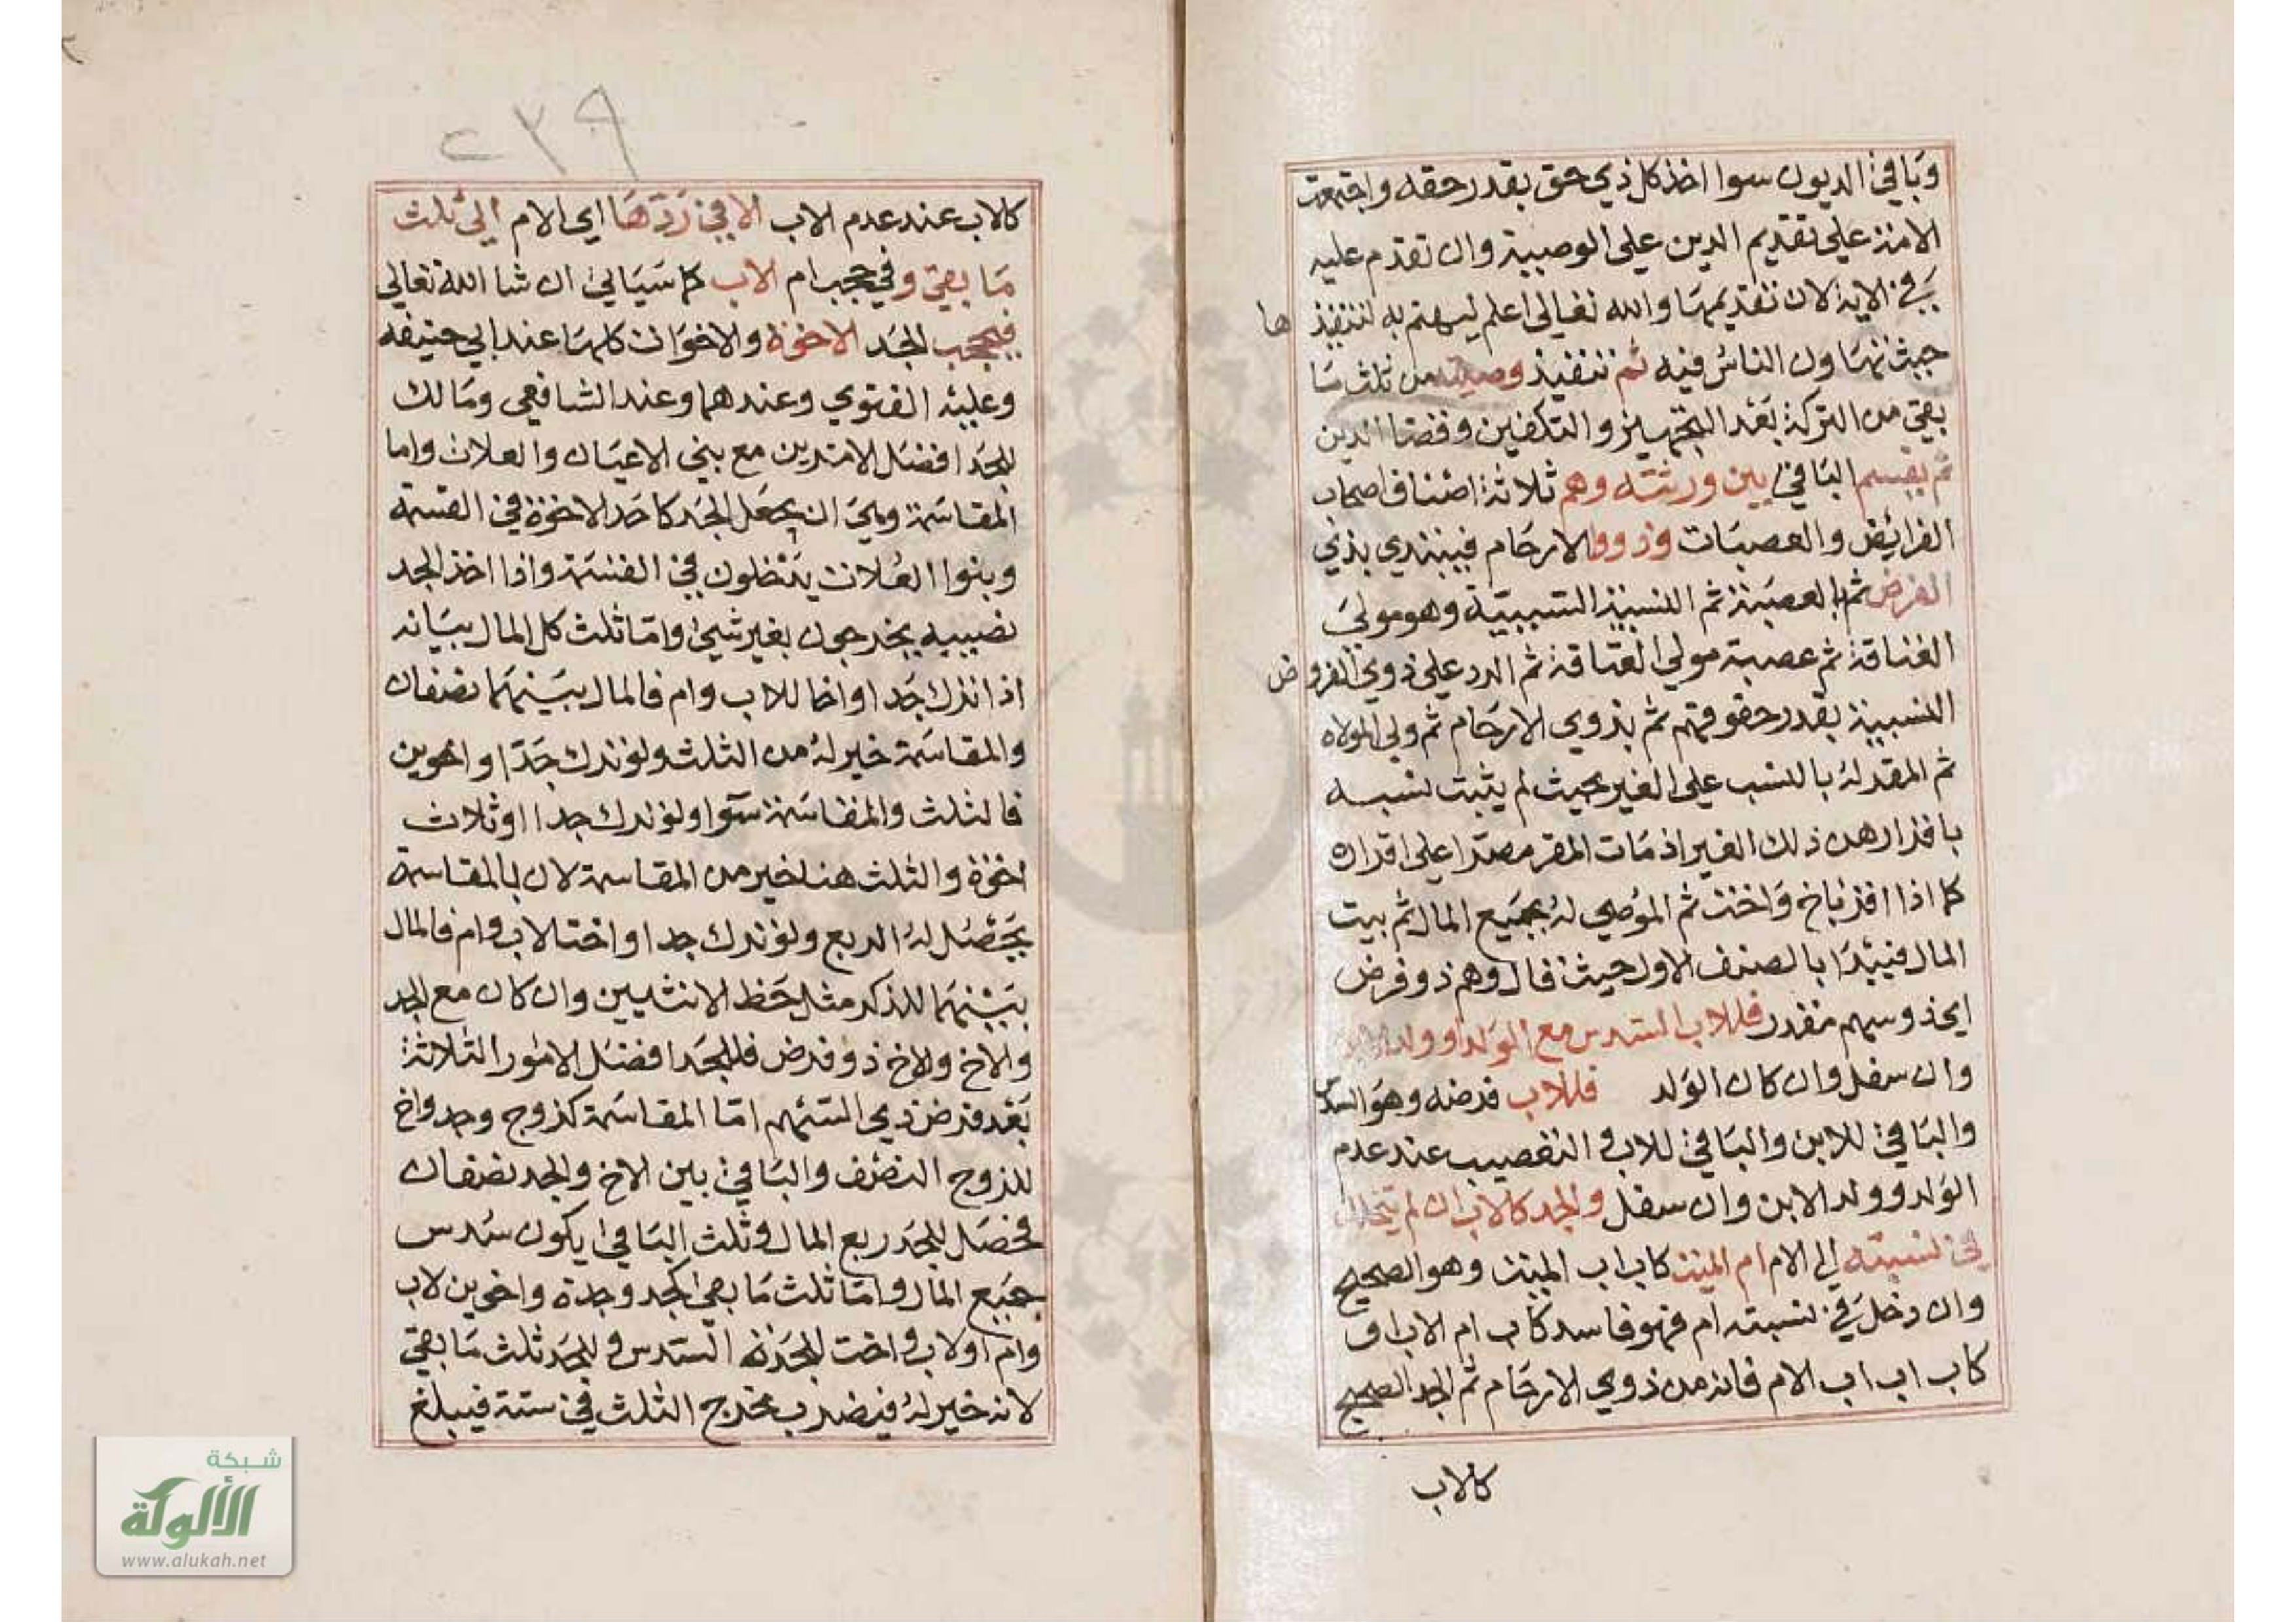 وباقي الديون سوا اخذ كل ذي حق بقدر حقه واجتمعت
الامة علي تقديم الدين علي الوصية وان تقدم عليه
في الاية لان تقديمها والله تعالى اعلم ليهتم به لتنفيذ ها
حيث تهاون الناس فيه ثم تنفيذ وصيته من ثلث ما
بقي من التركة بعد التجهيز والتكفين وقضا الدين
ثم يقسم الباقي بين ورثته وهم ثلاثة اصناف اصحاب
الفرايض والعصبات وذووا الارحام فيبتدي بذي
الفرض ثم بالعصبة ثم النسبية السببية وهو مولي
العتاقة ثم عصبة مولي العتاقة ثم الرد علي ذوي الفروض
النسبية بقدر حقوقهم ثم بذوي الارحام ثم ولي المولاه
ثم المقر له بالنسب علي الغير بحيث لم يثبت نسبه
باقراره من ذلك الغير اذ مات المقر مصرا علي اقراره
كما اذا اقر باخ واخت ثم الموصي له بجميع المال ثم بيت
المال فيبدا بالصنف الاول حيث قال وهم ذو فرض
اي ذو سهم مقدر فللاب السدس مع الولد او ولد
وان سفل وان كان الولد فللاب فرضه وهو السدس
والباقي للابن والباقي للاب و التعصيب عند عدم
الولد وولد الابن وان سفل والجد كالاب ان لم يتخلل
في نسبته الي الام ام الميت كاب اب الميت وهو الصحيح
وان دخل في نسبته ام فهو فاسد كاب ام الاب او
كاب اب اب الام فانه من ذوي الارحام ثم الجد الصحيح
كالاب
٢٣٩
كالاب عند عدم الاب الا في ردها اي الام الي ثلث
ما بقي وفي حجب ام الاب كما سياتي ان شا الله تعالي
فيحجب الجد الاخوة والاخوات كلها عند ابي حنيفه
وعليه الفتوي وعندهما وعند الشافعي ومالك
للجد افضل الامرين مع بني الاعيان والعلات واما
المقاسمة وهي ان يجعل الجد كاحد الاخوة في القسمة
وبنوا العلات يدخلون في القسمة واذا اخذ الجد
نصيبه يخرجون بغير شي واما ثلث كل المال بيانه
اذا ترك جدا واخا للاب وام فالمال بينهما نصفان
والمقاسمة خير له من الثلث ولو ترك جدا واخوين
فالثلث والمقاسمة سوا ولو ترك جدا اوثلاث
اخوة والثلث هنا خير من المقاسمة لان بالمقاسمة
يحصل له الربع ولو ترك جدا واختا لاب وام فالمال
بينهما للذكر مثل حظ الانثيين وان كان مع الجد
والاخ ولاخ ذو فرض فللجد افضل الامور الثلاثة
بعد فرض ذي السهم اما المقاسمة كزوج وجد واخ
للزوج النصف والباقي بين الاخ والجد نصفان
فحصل للجد ربع المال وثلث الباقي يكون سدس
جميع المال واما ثلث ما بقي كجد وجدة واخوين لاب
وام اولاب و اخت للجدة السدس و للجد ثلث ما بقي
لانه خير له فيضرب مخرج الثلث في ستة فيبلغ
شبكة
الألوكة
www.alukah.net